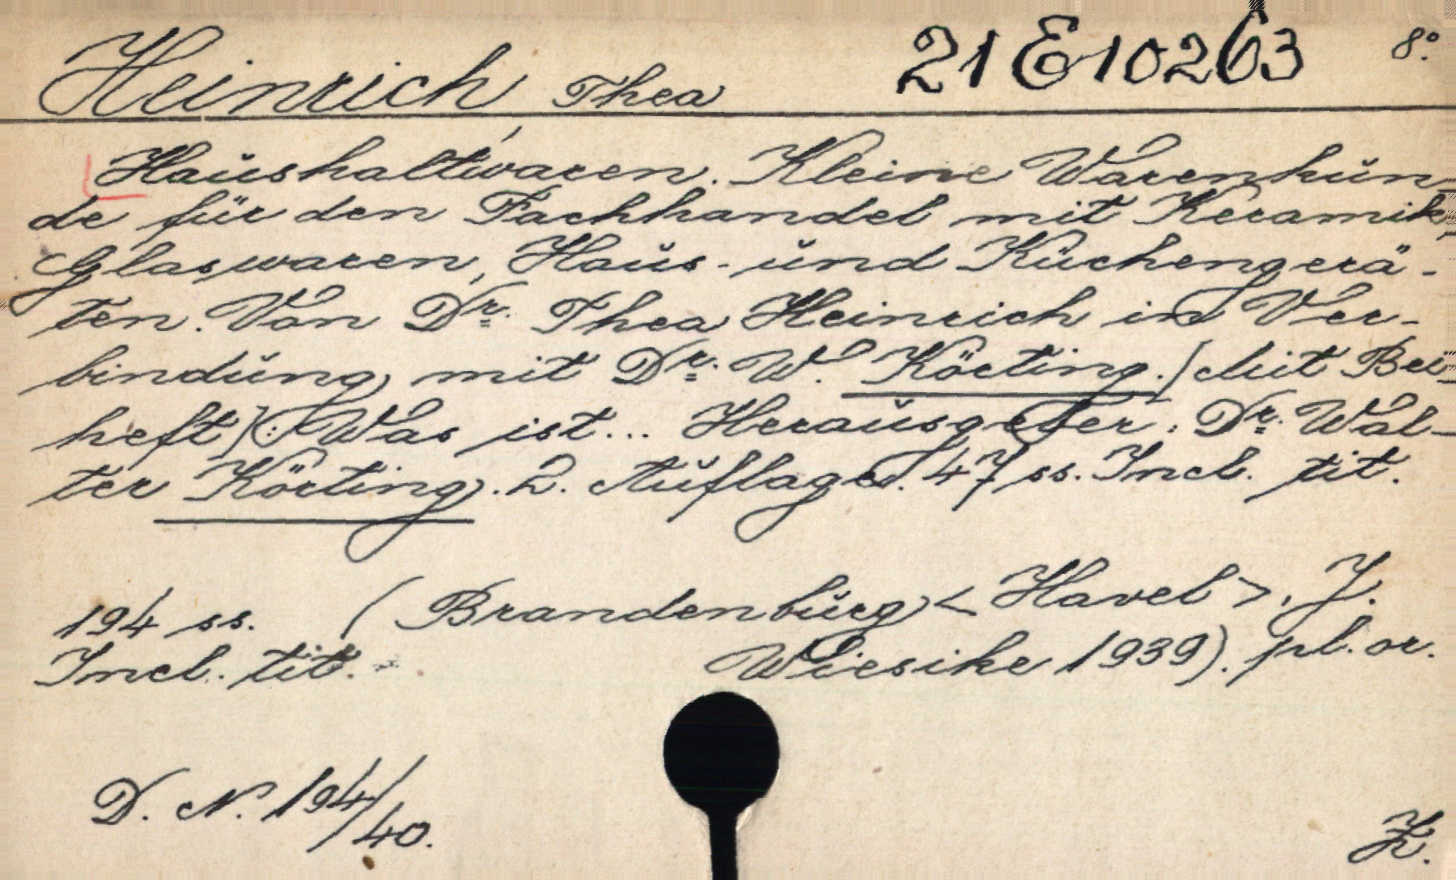 Heinrich Thea 21 E 10263 8°.
Haushaltwaren. Kleine Warenkun-
de für den Fachhandel mit Keramik,
Glaswaren, Haus- und Küchengerä-
ten. Von Dr. Thea Heinrich in Ver-
bindung mit Dr. W. Körting. [Mit Bei-
heft]: Was ist... Herausgeber: Dr. Wal-
ter Körting. 2. Auflage. 47 ss. Incl. tit.
194 ss. (Brandenburg <Havel>, J.
Incl. tit. Wiesike 1939). pl. or.
D. N. 194/40.
K.